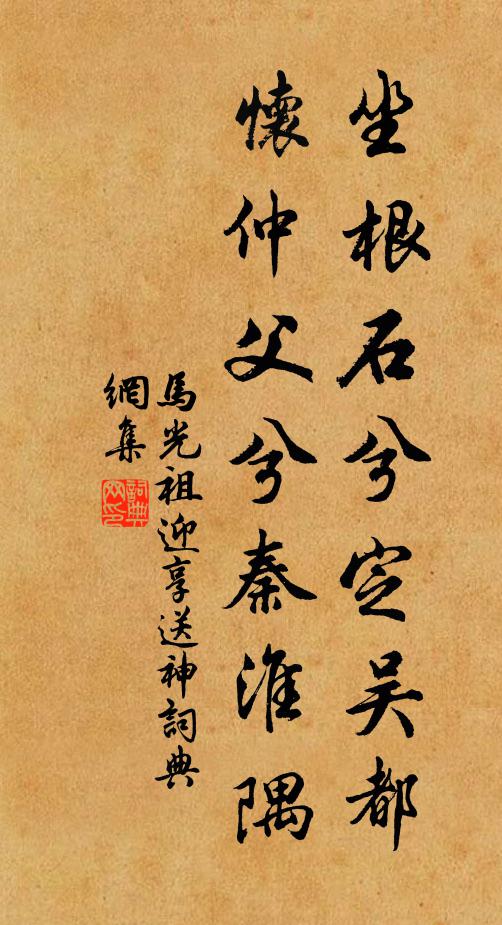 坐根石兮定吴都
懷仲父兮秦淮隅
馬光祖迎享送神詞典
網集
詞典網印